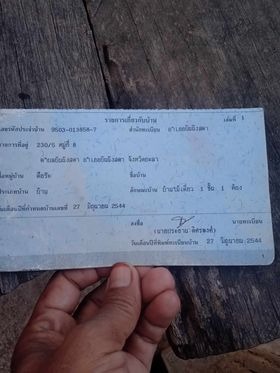 รายการเกี่ยวกับบ้าน เล่มที่ 1
เลขรหัสประจำบ้าน 9503-013858-7 สำนักทะเบียน อำเภอบันนังสตา
รายการที่อยู่ 230/5 หมู่ที่ 8
ตำบลบันนังสตา อำเภอบันนังสตา จังหวัดยะลา
ชื่อหมู่บ้าน ชื่อบ้าน
ประเภทบ้าน บ้าน ลักษณะบ้าน 1 ชั้น 1 ห้อง
วันเดือนปีที่กำหนดบ้านเลขที่ 27 มิถุนายน 2544
ลงชื่อ นายทะเบียน
วันเดือนปีที่พิมพ์ทะเบียนบ้าน 27 มิถุนายน 2544